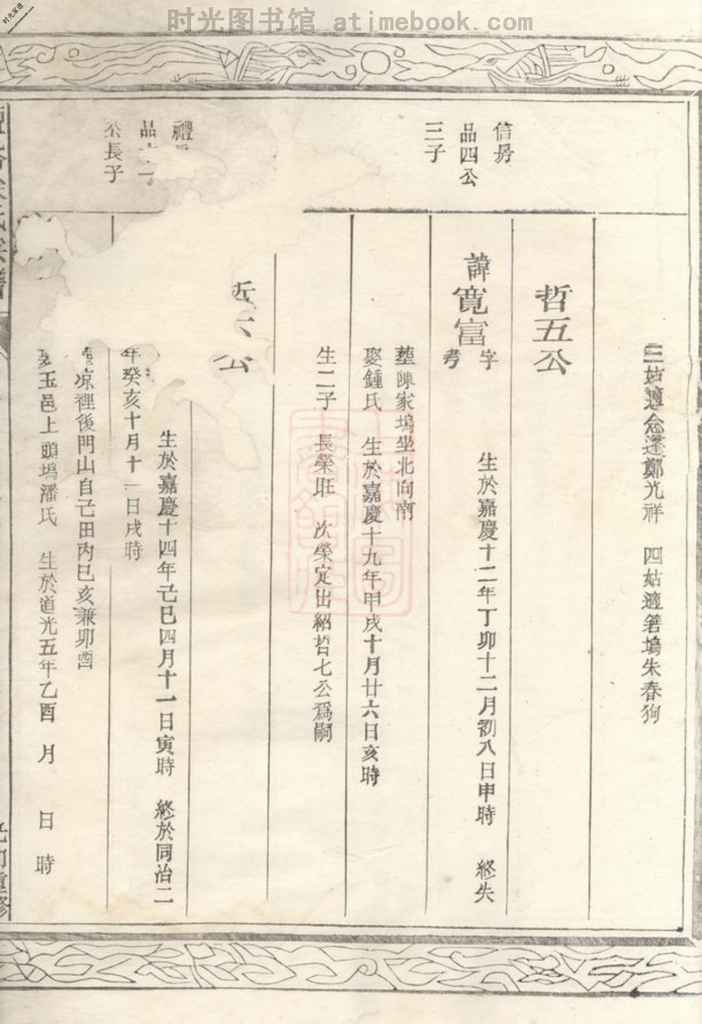 时光图书馆 atimebook.com
三姑適念遷鄭光祥 四姑適箬塢朱春狗
哲五公
信房
品四公
三子
諱寬富 字 生於嘉慶十二年丁卯十二月初八日申時 終失
考
葬陳家塢坐北向南
娶鍾氏 生於嘉慶十九年甲戌十月廿六日亥時
生二子 長榮旺 次榮定出紹哲七公為嗣
公
禮
品
公長子
生於嘉慶十四年己巳四月十一日寅時 終於同治二
年癸亥十月十一日戌時
涼裡後門山自己田丙巳亥兼卯酉
玉邑上頭塢潘氏 生於道光五年乙酉 月 日 時